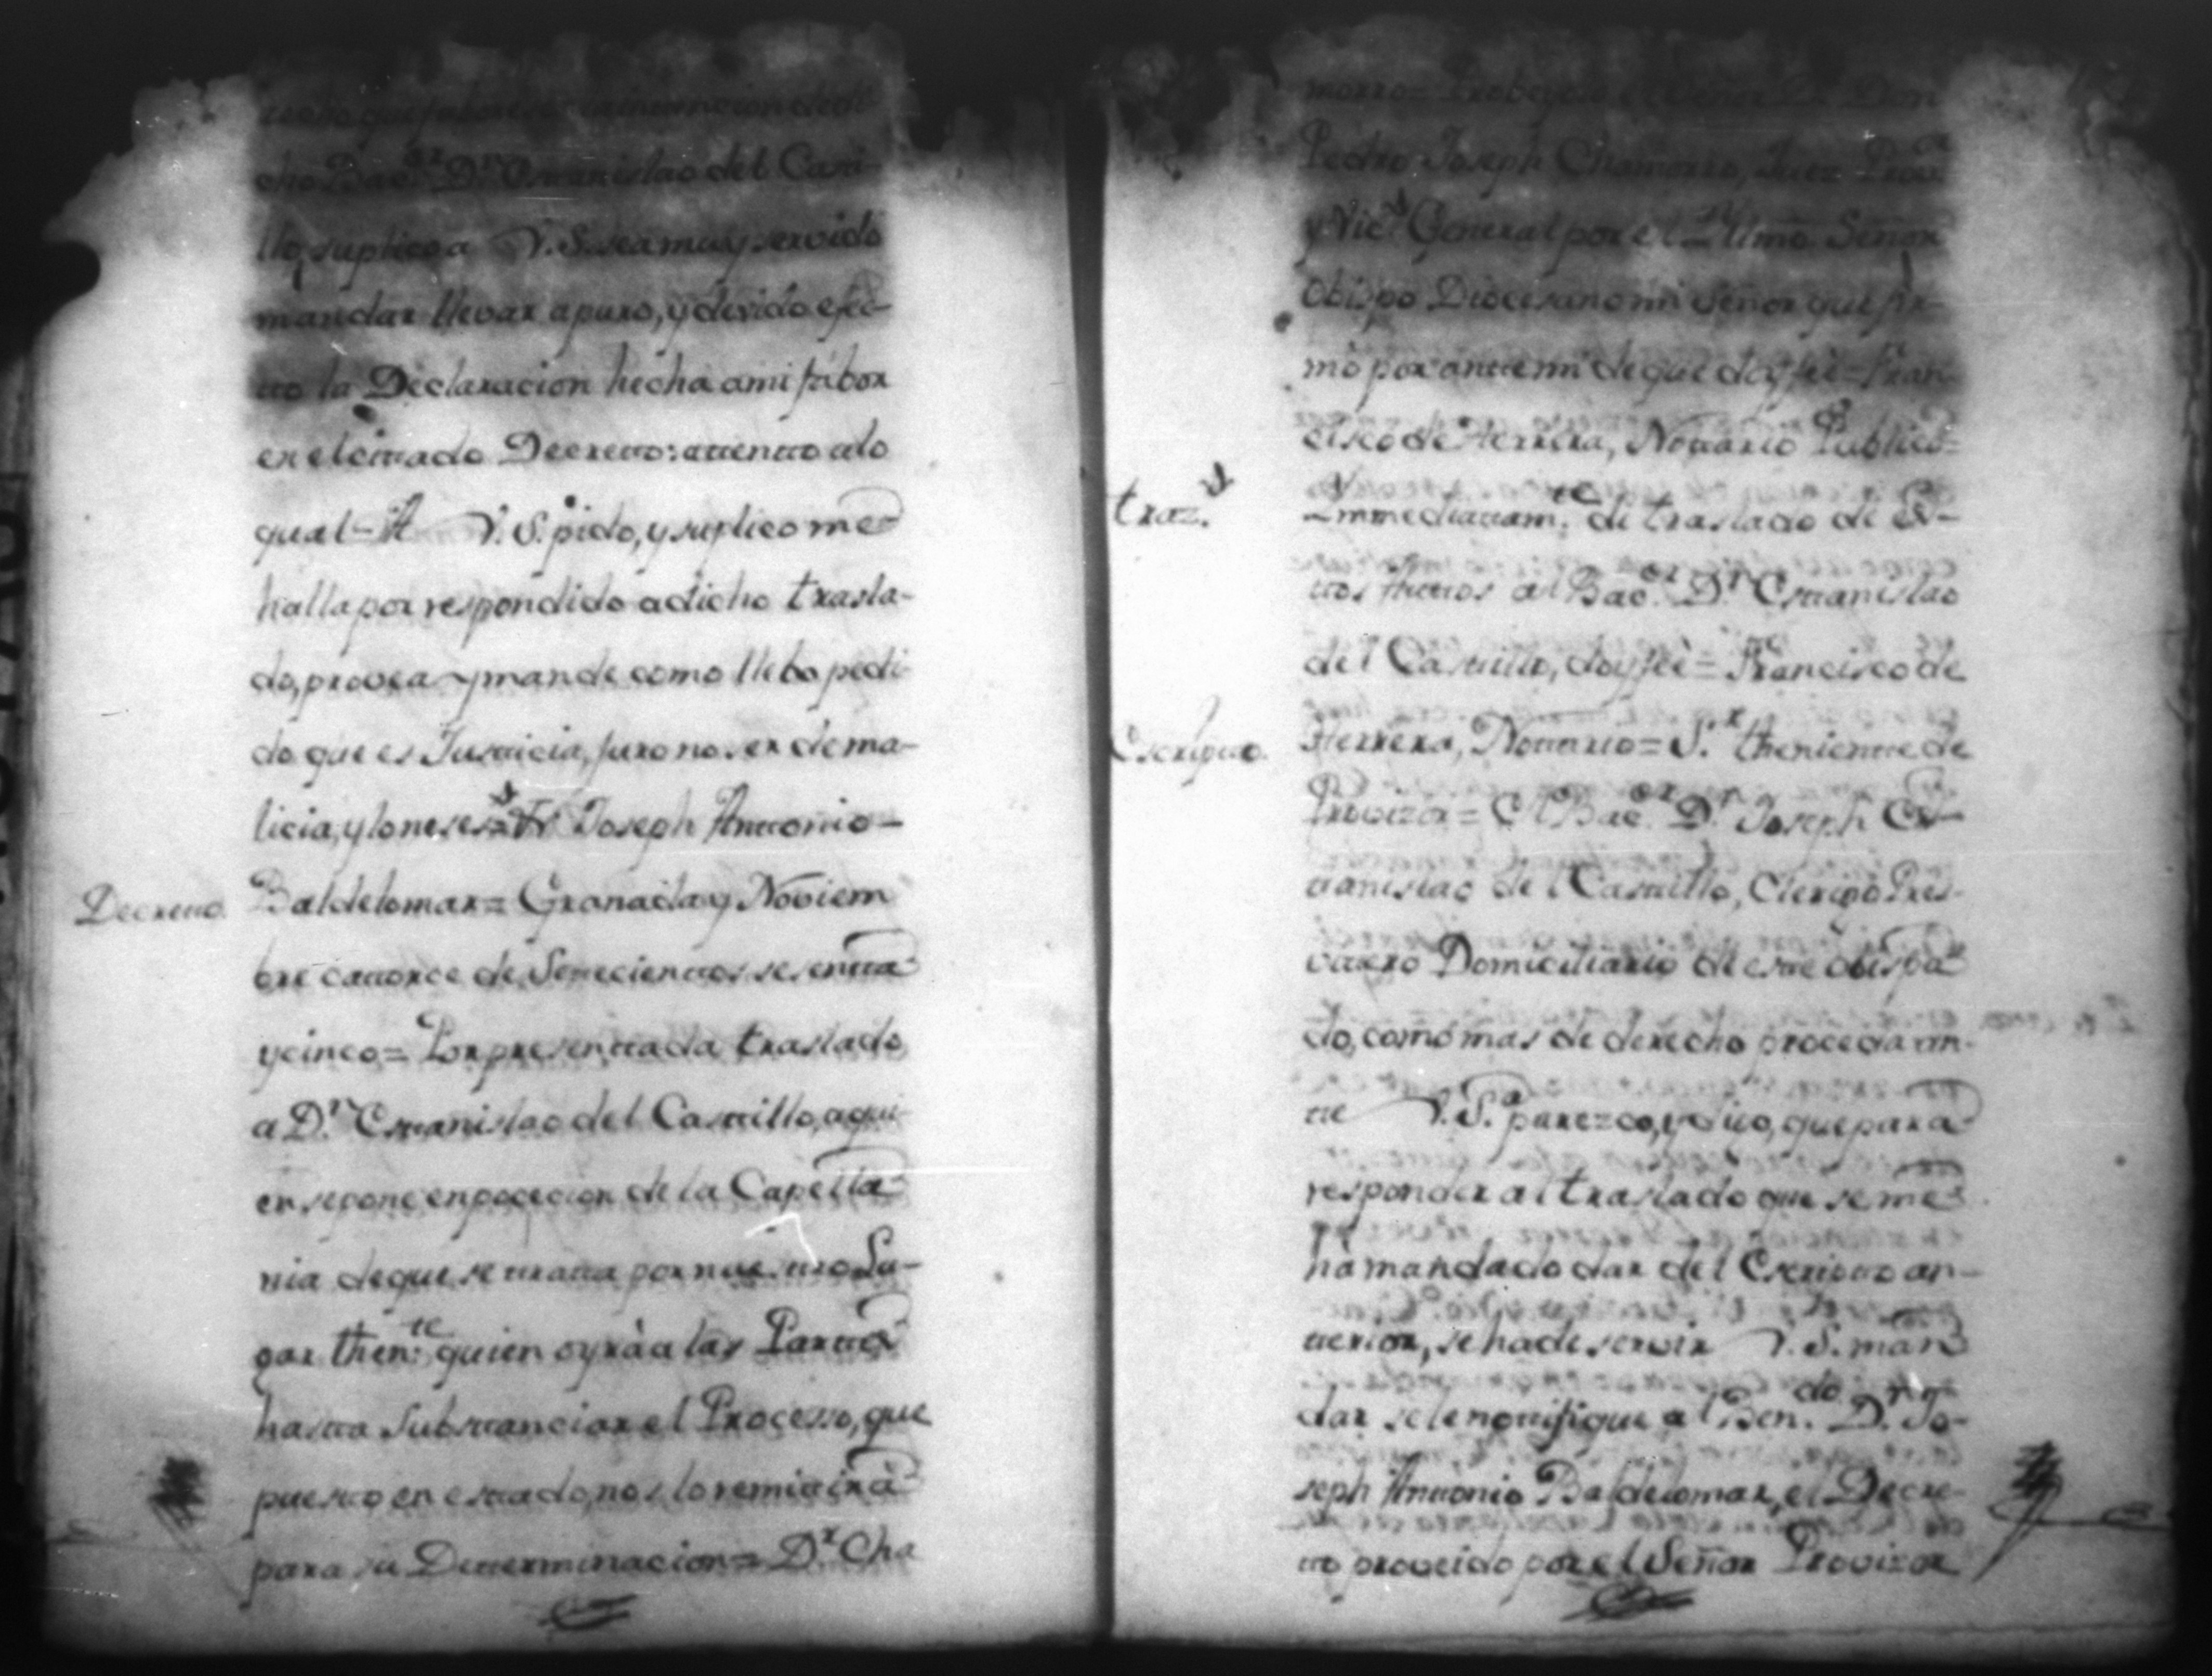 cho Bac.or D.n Estanislao del Casti-
llo, suplico a V. S. sea muy servido
mandar llevar a puro, y devido efec-
tto la Declaracion hecha a mi fabor
en el cittado Decretto: attentto a lo
qual = A V. S. pido, y suplico me
halla por respondido a dicho trasla-
do, provea y mande como llebo pedi-
do que es Justticia, juro no ser de ma-
licia, y lo neses.o = Joseph Anttonio
Decretto.
Baldelomar = Granada y Noviem
bre cattorce de Settecienttos sesentta
y cinco = Por presenttada traslado
a D.n Esttanislao del Casttillo, a qui-
en se pone en pocecion de la Capella-
nia de que se tratta por nuesttro Lu-
gar then.te quien oyrà a las Parttes
hastta Substtanciar el Processo, que
puestto en esttado, nos lo remittirá
para su Dettermina­cion = D.r Cha
morro = Probeyolo el Señor D.r Don
Pedro Joseph Chamorro, Juez Prov.or
y Vic.o General por el Illmo. Señor
Obispo Diocesano mi Señor que fir-
mò por antte mi de que doy feè = Fran-
cisco de Herrera, Nottario Publico =
traz.do
Immediattam.te di traslado de es-
ttos Auttos al Bac.or D.n Esttanislao
del Casttillo, doy feè = Francisco de
Escriptto.
Herrera, Nottario = S.r theniente de
Provizor = El Bac.or D.n Joseph Es-
ttanislao del Casttillo, Clerigo Pres-
vittero Domiciliario de estte obispa-
do, como mas de derecho proceda an-
tte V. S.a parezco, y digo, que para
responder al traslado que se me
hà mandado dar del Escriptto an-
tterior, se ha de servir V. S. man
dar se le nottifique al Ben.do D.n Jo-
seph Anttonio Baldelomar, el Decre-
tto proveido por el Señor Provizor